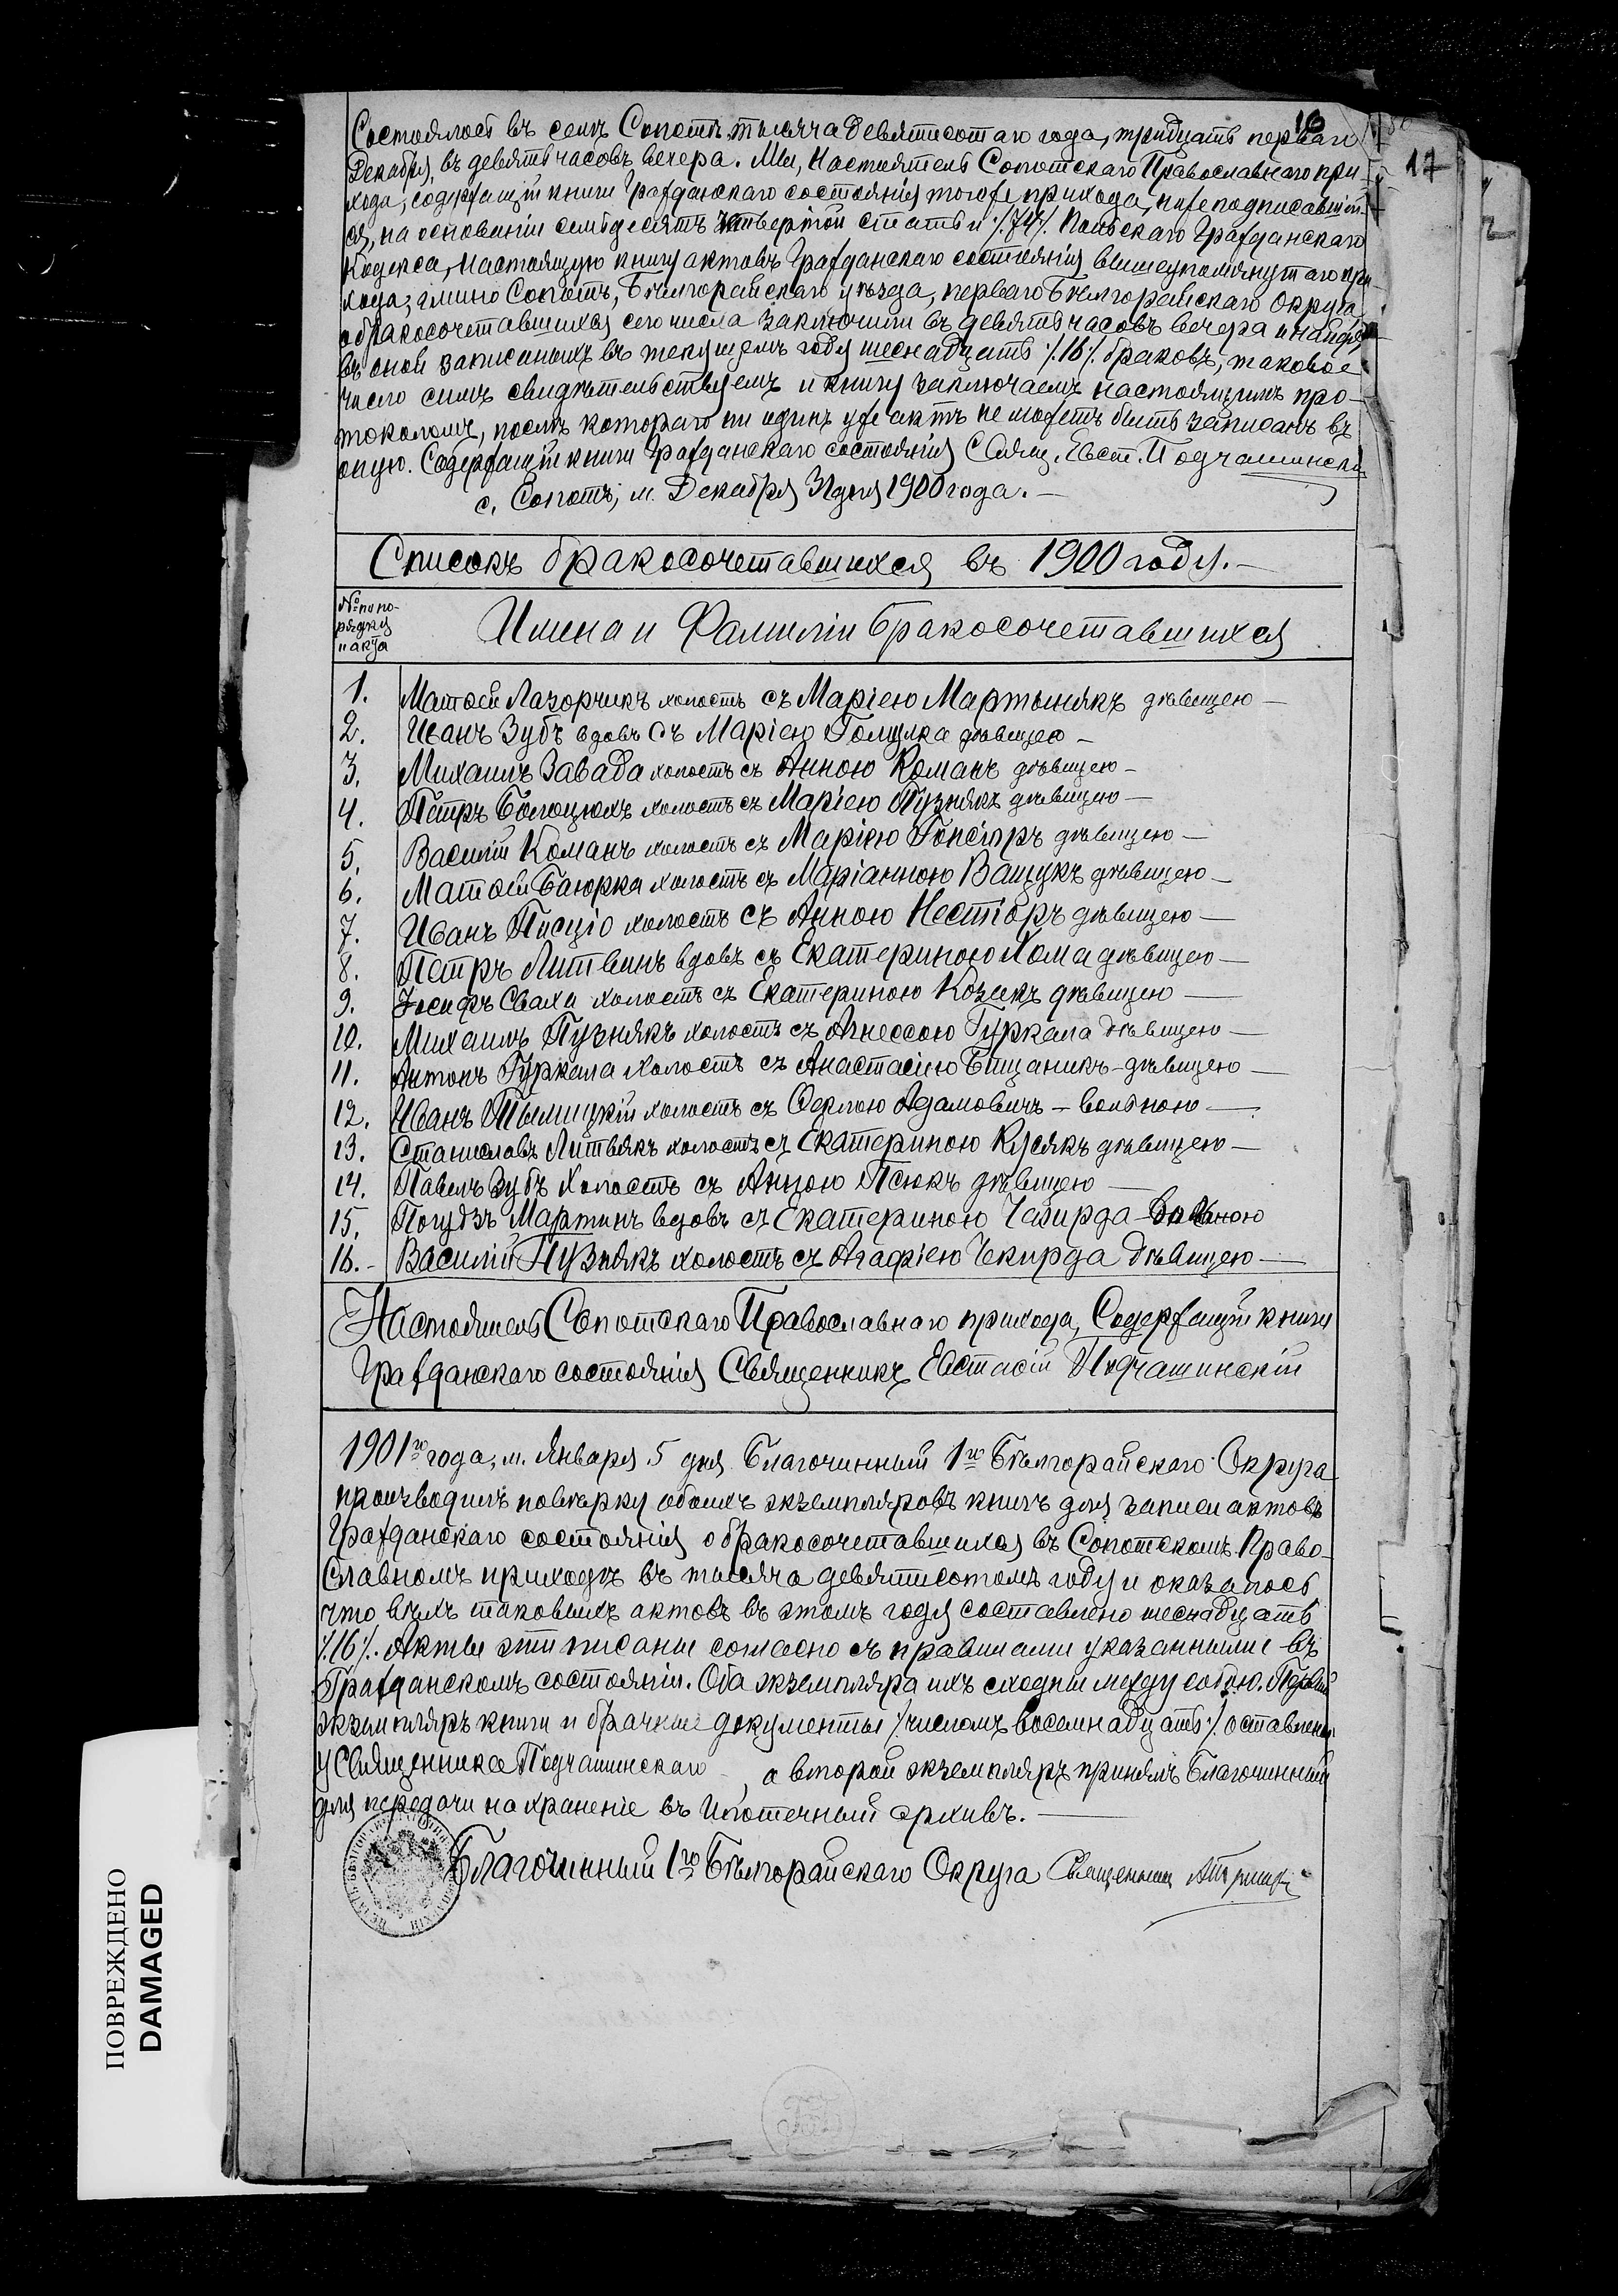 16
17
Состоялось въ селѣ Сопотѣ тысяча девятисотаго года, тридцать перваго
Декабря, въ девять часовъ вечера. Мы, Настоятель Сопотскаго Православнаго при-
хода, содержащій книги Гражданскаго состоянія тогоже прихода, нижеподписавшій-
ся, на основаніи семьдесятъ четвертой статьи /:74:/ Польскаго Гражданскаго
Кодекса, настоящую книгу актовъ Гражданскаго состоянія вышеупомянутаго при-
хода, гмины Сопотъ, Бѣлгорайскаго уѣзда, перваго Бѣлгорайскаго Округа
о бракосочетавшихся сего числа заключили въ девять часовъ вечера и найдя
въ оной записанныхъ въ текущемъ году шеснадцать /:16:/ браковъ, таковое
число симъ свидѣтельствуемъ и книгу заключаемъ настоящимъ про-
токоломъ, послѣ котораго ни одинъ уже актъ не можетъ быть записанъ въ
оную. Содержащій книги Гражданскаго состоянія Свящ. Евст. Подчашинскій
с. Сопотъ, м. Декабря 31 дня 1900 года.—
Списокъ бракосочетавшихся въ 1900 году.—
№ по по-
рядку
и акта
Имена и Фамиліи бракосочетавшихся
1. Матѳей Лазорчикъ холостъ съ Маріею Мартынякъ дѣвицею —
2. Иванъ Зубъ вдовъ съ Маріею Голушка дѣвицею —
3. Михаилъ Завада холостъ съ Анною Команъ дѣвицею —
4. Петръ Болоцюхъ холостъ съ Маріею Пузнякъ дѣвицею —
5. Василій Команъ холостъ съ Маріею Гонсіоръ дѣвицею —
6. Матѳей Баюрка холостъ съ Маріанною Ващукъ дѣвицею —
7. Иванъ Писціо холостъ съ Анною Нестіоръ дѣвицею —
8. Петръ Литвинъ вдовъ съ Екатериною Хома дѣвицею —
9. Іосифъ Сваха холостъ съ Екатериною Козакъ дѣвицею —
10. Михаилъ Пузнякъ холостъ съ Агнессою Гуркала дѣвицею —
11. Антонъ Гуркала холостъ съ Анастасіею Бищаникъ - дѣвицею —
12. Иванъ холостъ съ Адамовичъ - вольною —
13. Станиславъ Литвякъ холостъ съ Екатериною Кусякъ дѣвицею —
14. Павелъ Зубъ холостъ съ Анною Псюкъ дѣвицею —
15. Погудзъ Мартинъ вдовъ съ Екатериною Чакирда - вольною
16.- Василій Пузнякъ холостъ съ Агафіею Чекирда дѣвицею —
Настоятель Сопотскаго Православнаго прихода, Содержащій книги
Гражданскаго состоянія Священникъ Евстафій Подчашинскій
1901го года, м. Января 5 дня Благочинный 1го Бѣлгорайскаго Округа
производилъ повѣрку обоихъ экземпляровъ книгъ для записи актовъ
Гражданскаго состоянія о бракосочетавшихся въ Сопотскомъ Право-
славномъ приходѣ въ тысяча девятисотомъ году и оказалось
что всѣхъ таковыхъ актовъ въ этомъ году составлено шеснадцать
/:16:/. Акты эти писаны согласно съ правилами указанными въ
Гражданскомъ состояніи. Оба экземпляра ихъ сходны между собою. Первый
экземпляръ книги и брачные документы /:числомъ восемнадцать:/ оставлены
у Священника Подчашинскаго, а второй экземпляръ принялъ Благочинный
для передачи на храненіе въ Ипотечный архивъ. —
Благочинный 1го Бѣлгорайскаго Округа Священникъ
ПОВРЕЖДЕНО
DAMAGED